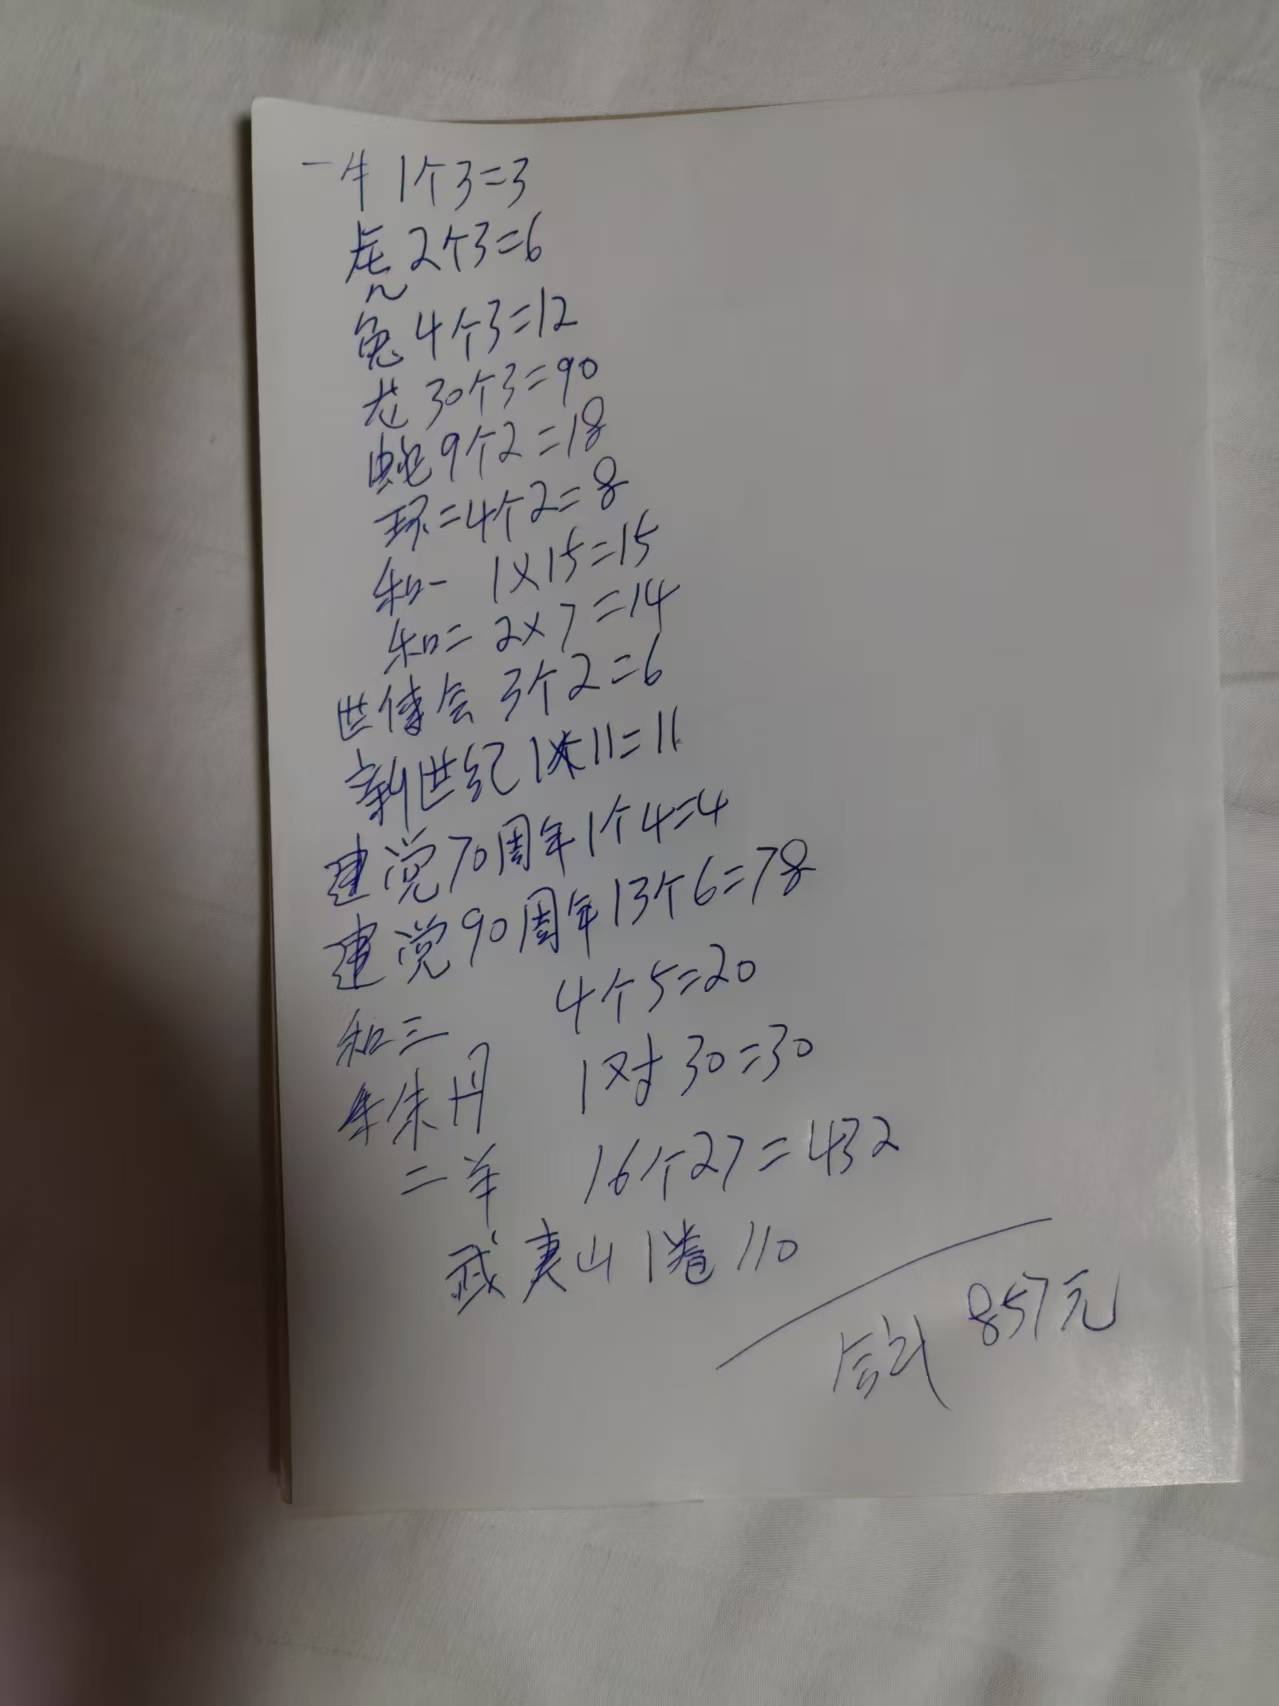 一牛 1个3=3
虎 2个3=6
兔 4个3=12
龙 30个3=90
蛇 9个2=18
环二4个2=8
和一 1×15=15
和二 2×7=14
世储会 3个2=6
新世纪 1枚11=11
建党70周年1个4=4
建党90周年13个6=78
和三 4个5=20
朱丹 1对30=30
二羊 16个27=432
武夷山1卷110
合计 857元